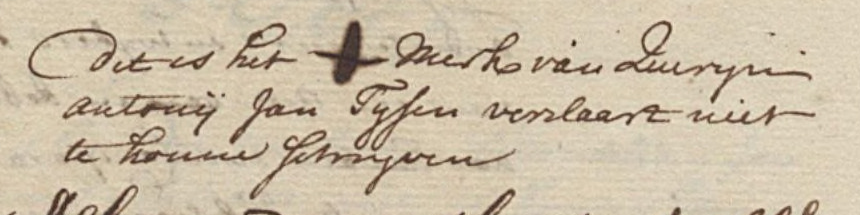 Dit is het + Merk van Quiryni
antonij Jan Tyssen verclaart niet
te konne schryven